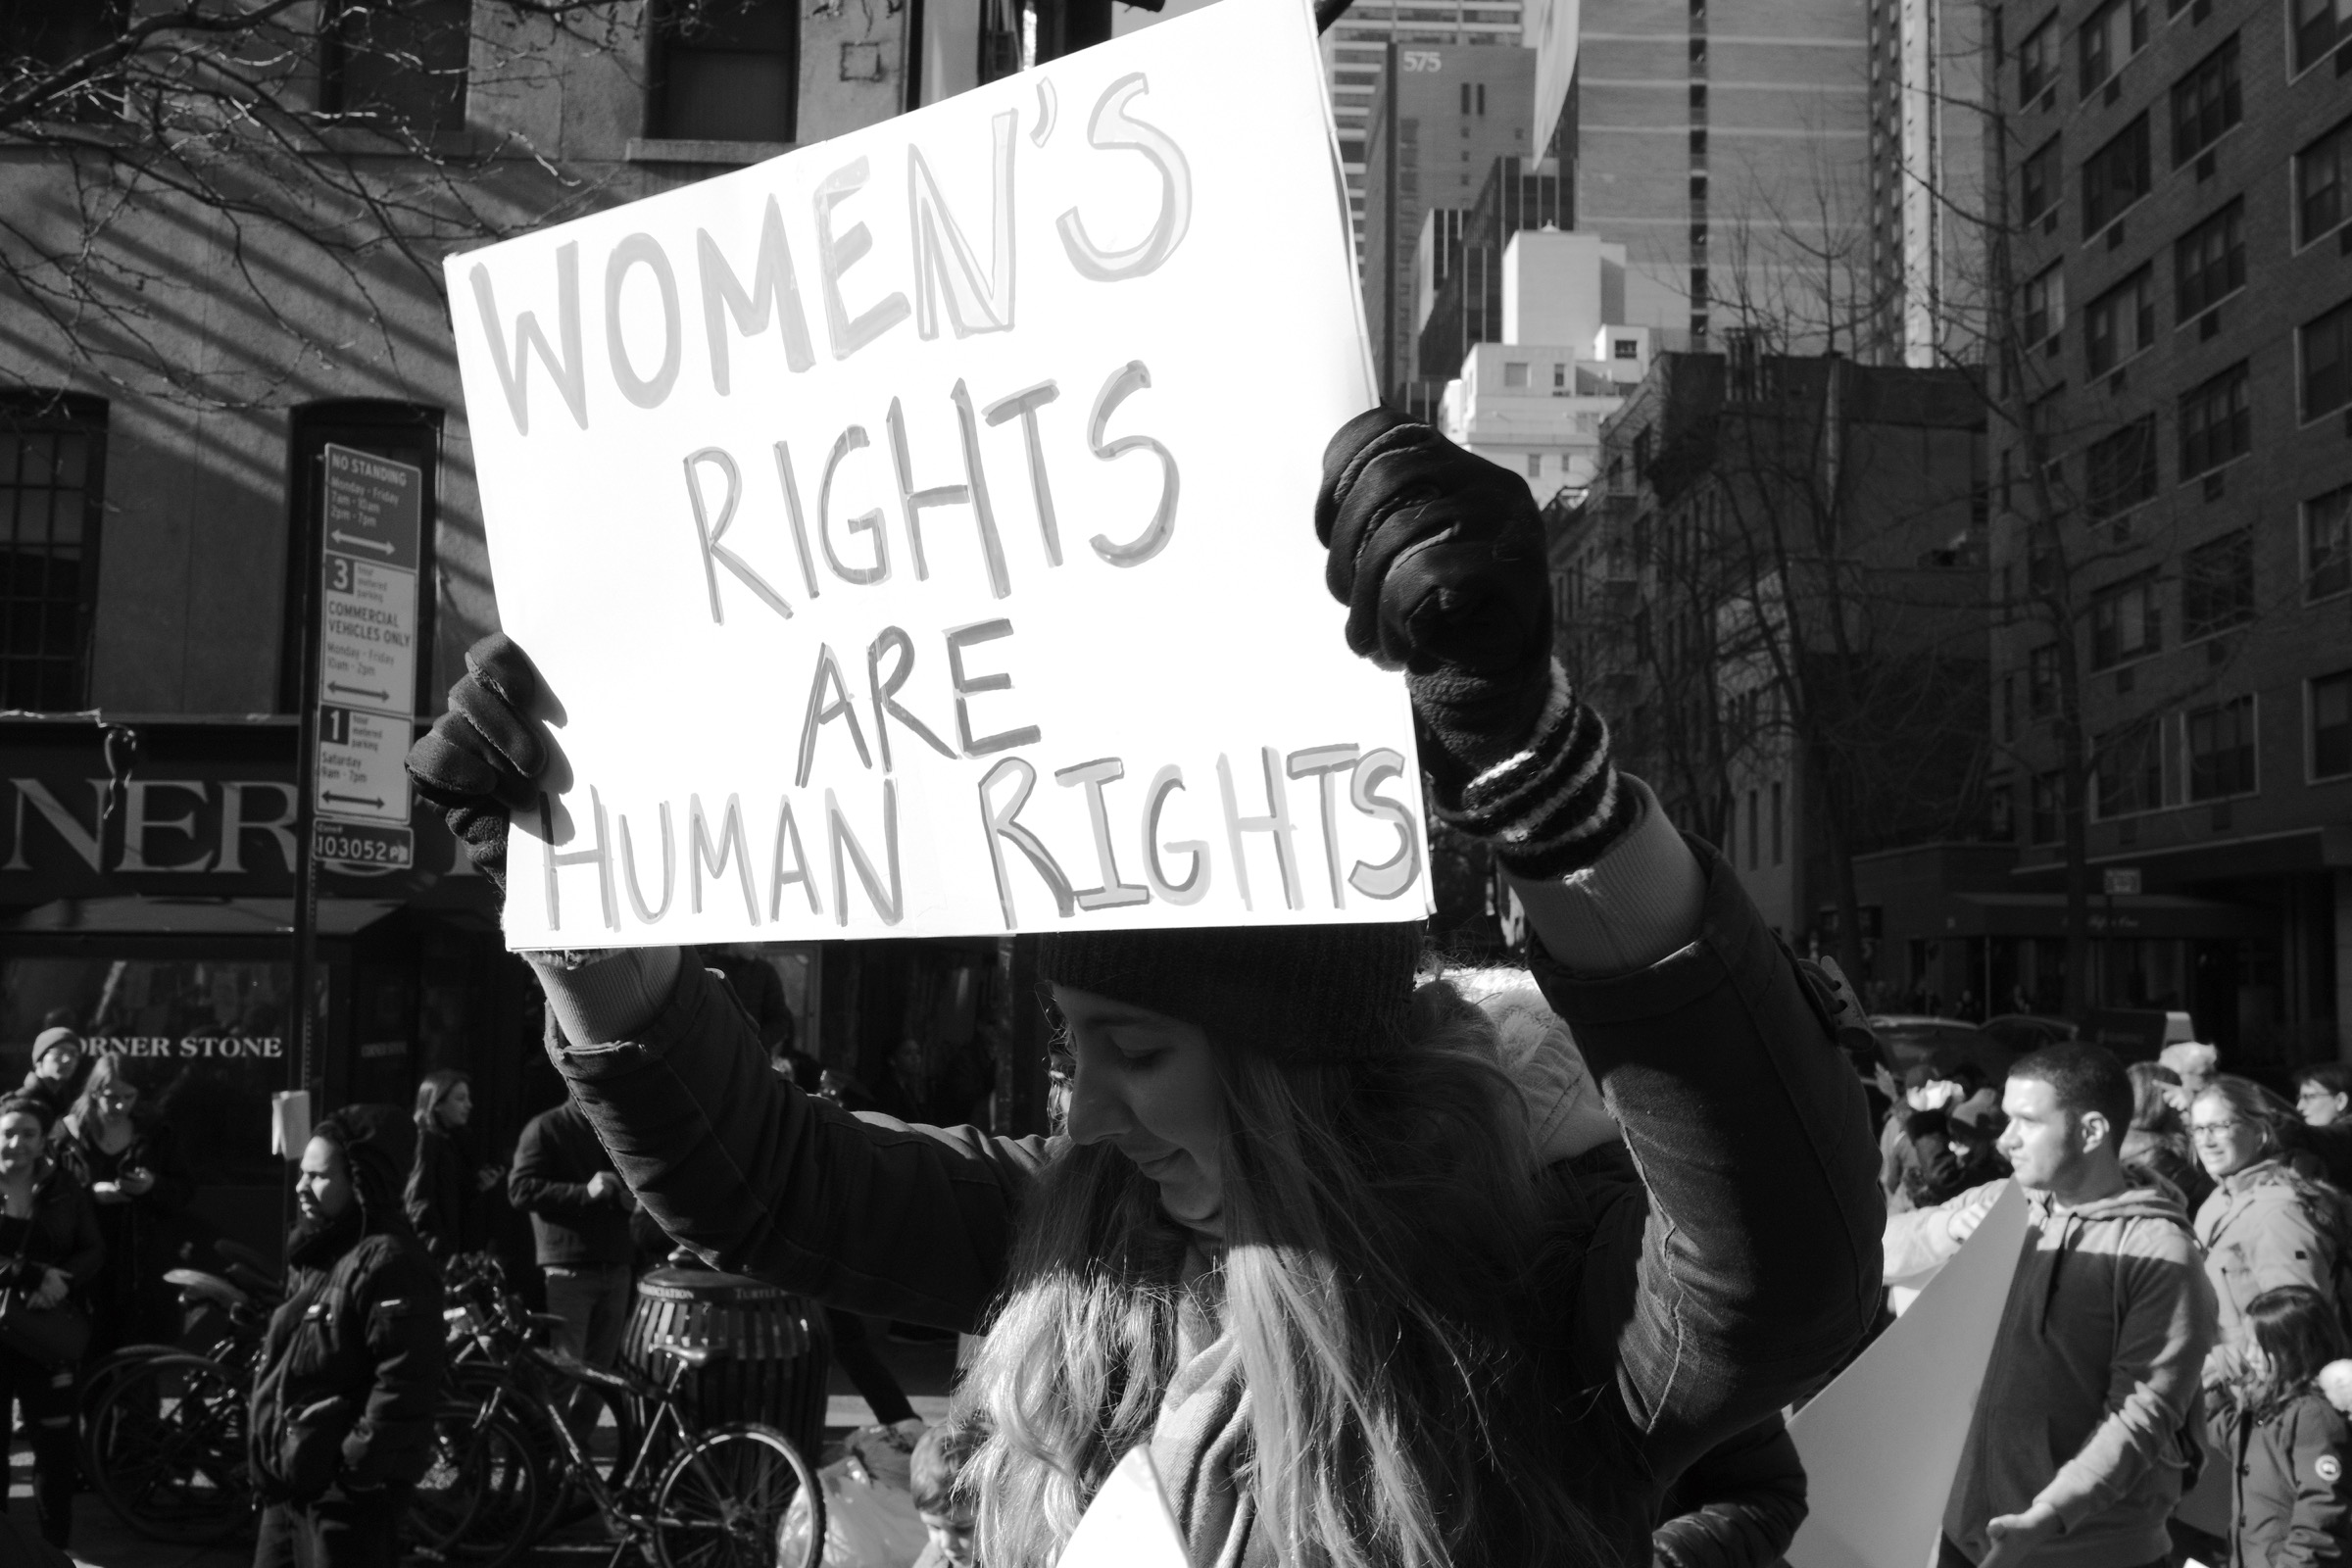 WOMEN'S
RIGHTS
ARE
HUMAN RIGHTS
575
NO STANDING
Monday - Friday
7am - 10am
2pm - 7pm
3 hour
metered
parking
COMMERCIAL
VEHICLES ONLY
Monday - Friday
10am - 2pm
1 hour
metered
parking
Saturday
9am - 7pm
103052P
NERST
ORNER STONE
SSOCIATION TURTLE